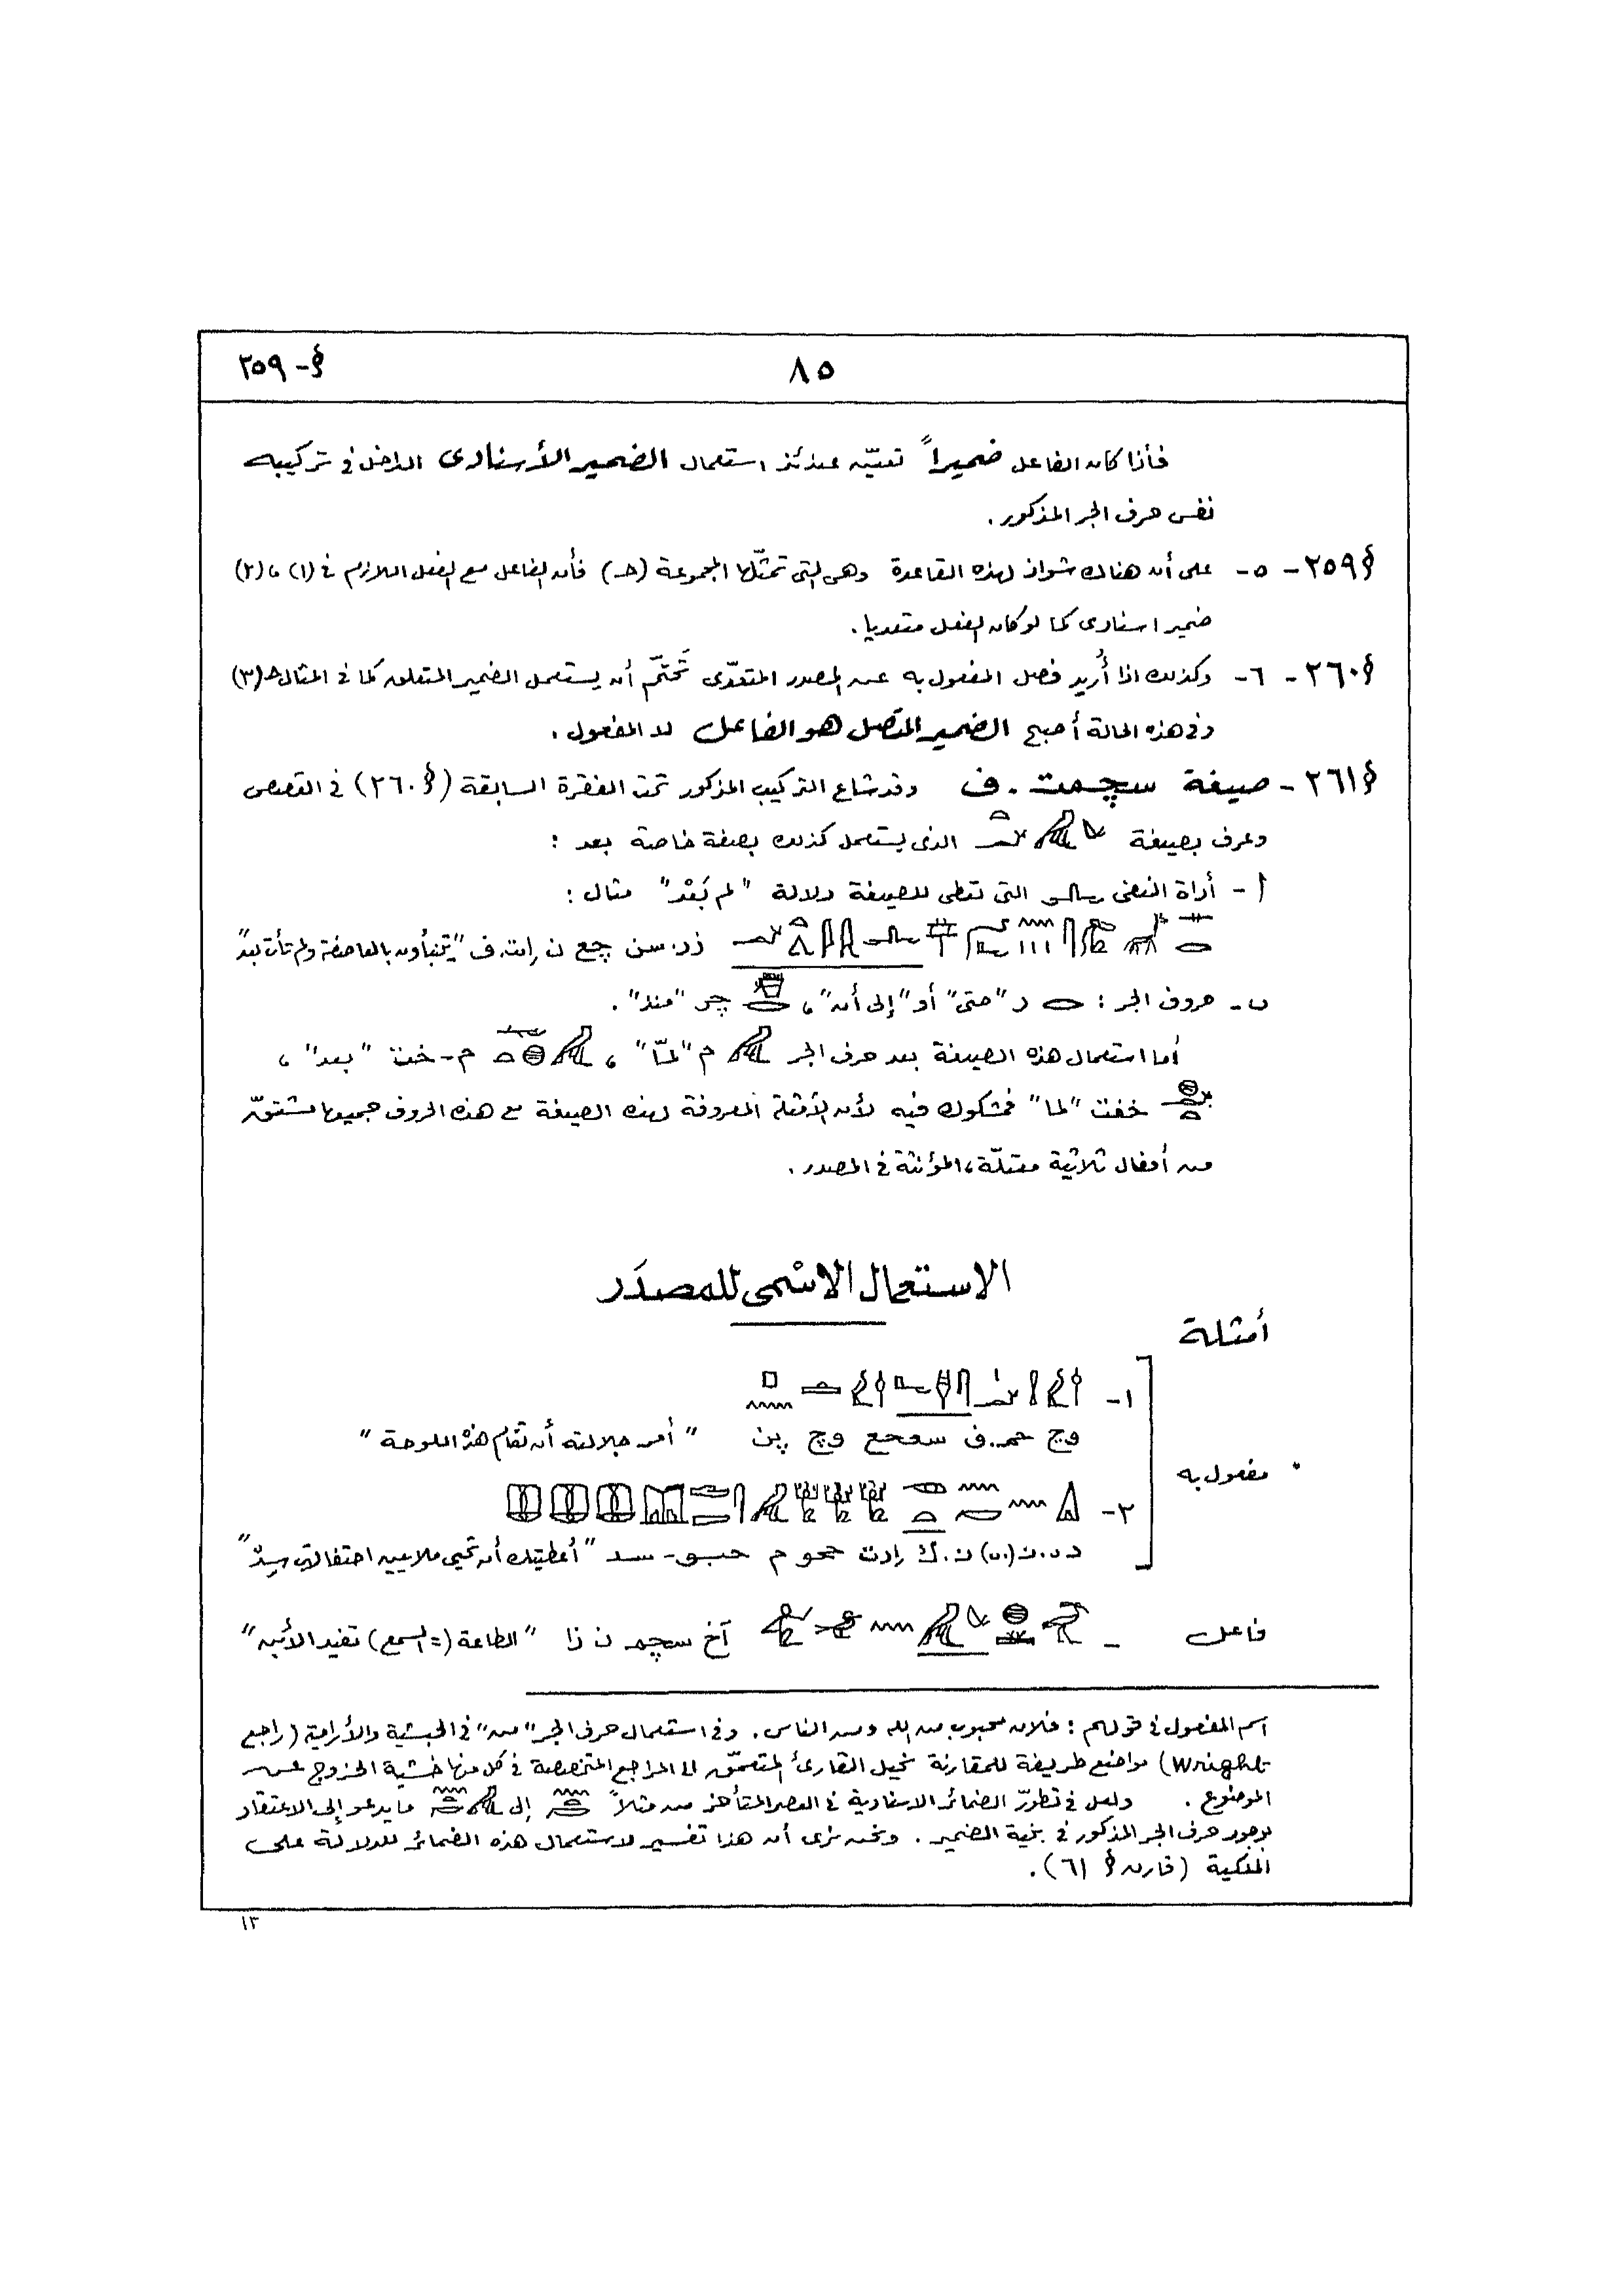 ٨٥
§ - ٢٥٩
فأذا كان الفاعل ضميراً تعيّن عندئذ استعمال الضمير الأسنادى الداخل فى تركيبه
نفس حرف الجر المذكور .
§ ٢٥٩ - ٥ - على أن هناك شواذ لهذه القاعدة وهى التى تمثّلها المجموعة (حـ) فأن الفاعل مع الفعل اللازم فى (١) ، (٢)
ضمير اسنادى كما لو كان الفعل متعديا .
§ ٢٦٠ - ٦ - وكذلك اذا أُريد فصل المفعول به عن المصدر المتعدّى تَحتّم أن يستعمل الضمير المتعلق كما فى المثال حـ (٣)
وفى هذه الحالة أصبح الضمير المتصل هو الفاعل لا المفعول .
§ ٢٦١ - صيغة سچمت . ف وقد شاع التركيب المذكور تحت الفقرة السابقة (§ ٢٦٠) فى القصص
وعرف بصيغة الذى يستعمل كذلك بصفة خاصة بعد :
أ - أداة النفى التى تعطى للصيغة دلالة "لم بَعْد" مثال :
ذر.سن چع ن إيت.ف "يتنبأون بالعاصفة ولم تأت بعدً
ب - حروف الجر : ر "حتى" أو "إلى أن" ، چر "منذ" .
أما استعمال هذه الصيغة بعد حرف الجر م "لمّا" ، م - خت "بعد" ،
خفت "لما" فمشكوك فيه لأن الأمثلة المعروفة لهذه الصيغة مع هذه الحروف جميعها مشتقّة
من أفعال ثلاثية معتلّة ، المؤنثة فى المصدر .
الاستعمال الاسْمى للمصدَر
أمثلة
١ -
وچ حم.ف سعحع وچ پن " أمر جلالته أن تقام هذه اللوحة "
مفعول به
٢ -
د.ن (.ى) ن.ك إرت ححو م حبو - سد " أعطيتك أن تحيى ملايين احتفالات سِدْ "
فاعل -
آخ سچم ن ذا " الطاعة (= السمع) تفيد الأبن "
اسم المفعول فى قولهم : فلان محبوب من الله ومن الناس . وفى استعمال حرف الجر "من" فى الحبشية والأرامية (راجع
Wright) مواضع طريفة للمقارنة نحيل القارئ المتعمّق الى المراجع المتخصصة فى كل منها خشية الخروج عن
الموضوع . ولعل فى تطوّر الضمائر الاسنادية فى العصر المتأخر من مثلاً إلى ما يدعو إلى الاعتقاد
بوجود حرف الجر المذكور فى بنية الضمير . ونحن نرى أن هذا تفسير لاستعمال هذه الضمائر للدلالة على
الملكية (قارن § ٦١) .
١٣